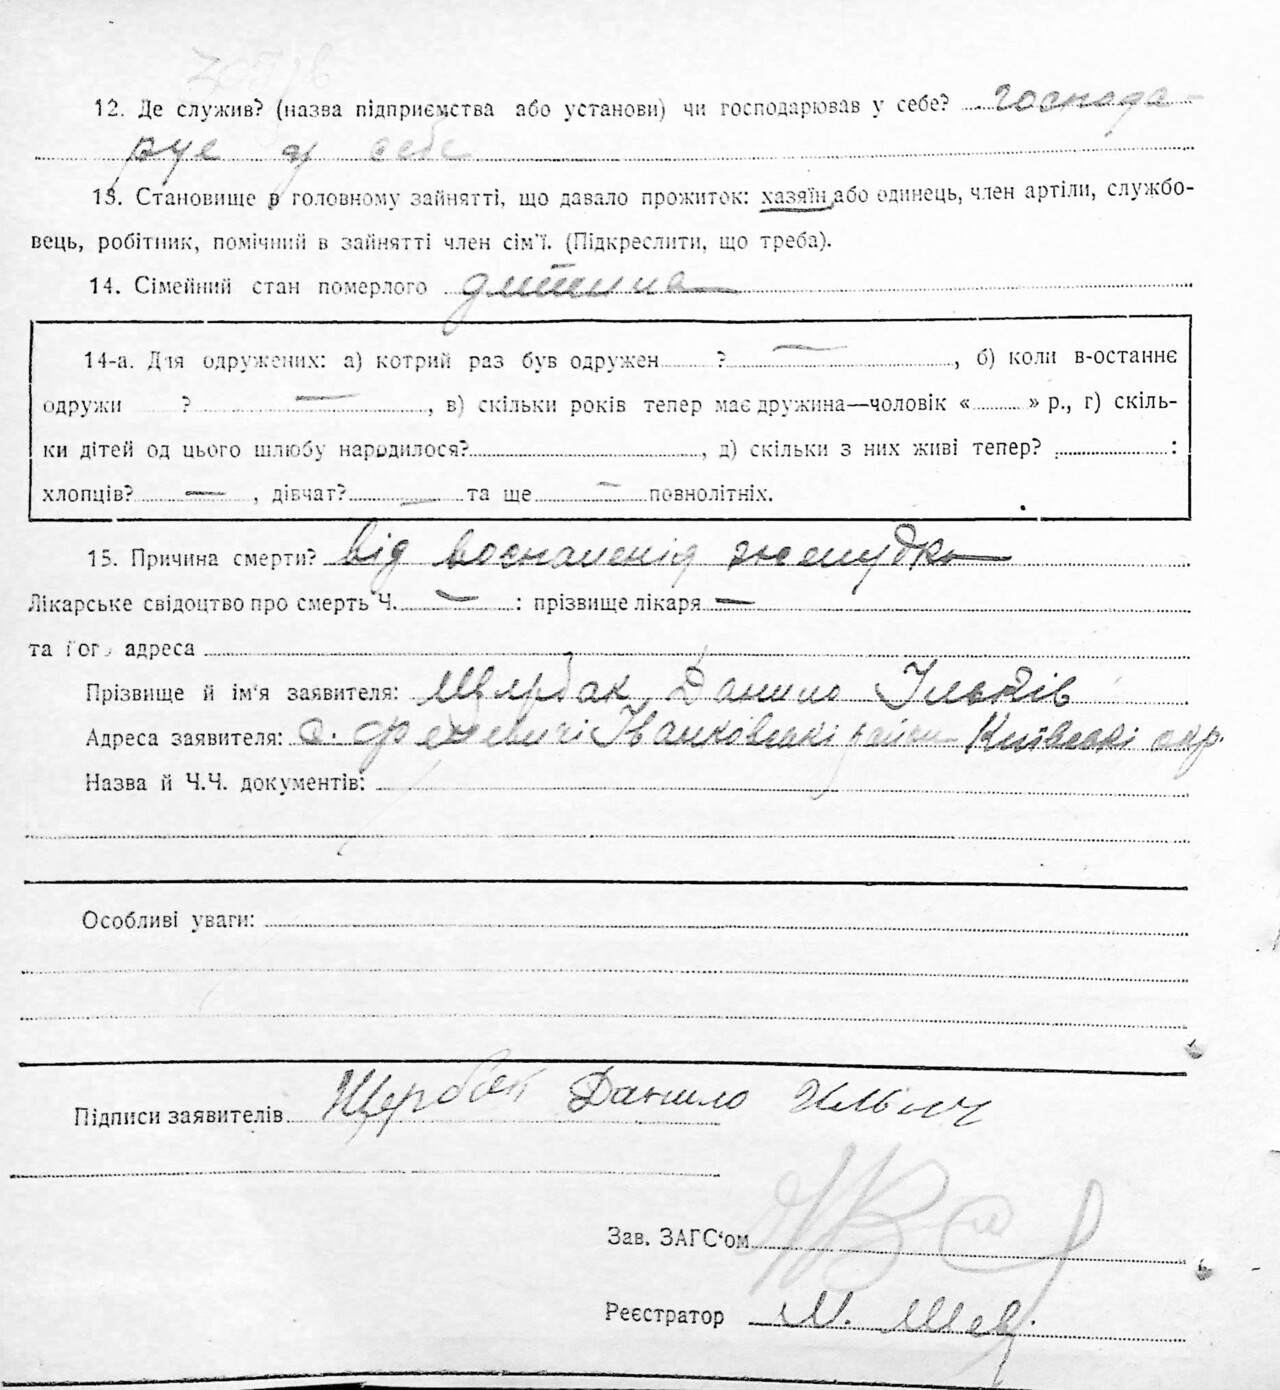 12. Де служив? (назва підприємства або установи) чи господарював у себе? господа-
рує у себе
13. Становище в головному зайнятті, що давало прожиток: хазяїн або одинець, член артіли, службо-
вець, робітник, помічний в зайнятті член сім'ї. (Підкреслити, що треба).
14. Сімейний стан померлого дитина
14-а. Для одружених: а) котрий раз був одружен ? —, б) коли в-останнє
одружи ? —, в) скільки років тепер має дружина—чоловік « » р., г) скіль-
ки дітей од цього шлюбу народилося? , д) скільки з них живі тепер? :
хлопців? — , дівчат? — та ще — повнолітніх.
15. Причина смерти? від воспаленія желудка
Лікарське свідоцтво про смерть Ч. — : прізвище лікаря —
та його адреса
Прізвище й ім'я заявителя: Щербак Данило Ільків
Адреса заявителя: с. Іванковські район Київські окр.
Назва й Ч.Ч. документів:
Особливі уваги:
Підписи заявителів Щербак Данило Ильич
Зав. ЗАГС'ом
Реєстратор М.